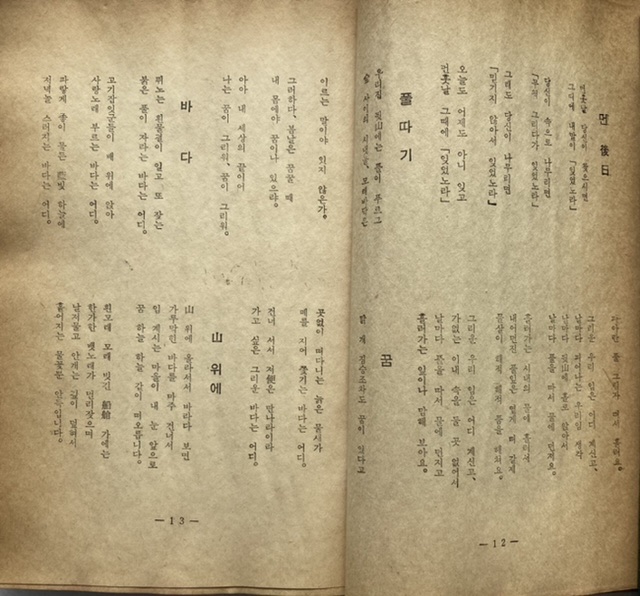 먼 後日
먼훗날 당신이 찾으시면
그때에 내말이 「잊었노라」
당신이 속으로 나무리면
「무척 그리다가 잊었노라」
그래도 당신이 나무리면
「믿기지 않아서 잊었노라」
오늘도 어제도 아니 잊고
먼훗날 그때에 「잊었노라」
풀따기
우리집 뒷山에는 풀이 푸르고
숲 사이의 시냇물, 모래바닥은
파아란 풀 그림자 떠서 흘러요.
그리운 우리 임은 어디 계신고,
날마다 피어나는 우리임 생각
날마다 뒷山에 홀로 앉아서
날마다 풀을 따서 물에 던져요.
흘러가는 시내의 물에 흘러서
내어던진 풀잎은 옅게 떠 갈제
물살이 해적 해적 품을 헤쳐요.
그리운 우리 임은 어디 계신고,
가없는 이내 속을 둘 곳 없어서
날마다 풀을 따서 물에 던지고
흘러가는 잎이나 맘해 보아요.
꿈
닭 개 짐승조차도 꿈이 있다고
—12—
이르는 말이야 있지 않은가,
그러하다, 봄날은 꿈꿀 때
내 몸에야 꿈이나 있으랴,
아아 내 세상의 끝이어
나는 꿈이 그리워, 꿈이 그리워.
바다
뛰노는 흰물결이 일고 또 잦는
붉은 풀이 자라는 바다는 어디,
고기잡이꾼들이 배 위에 앉아
사랑노래 부르는 바다는 어디,
파랗게 좋이 물든 藍빛 하늘에
저녁놀 스러지는 바다는 어디,
곳없이 떠다니는 늙은 물새가
떼를 지어 좇니는 바다는 어디.
건너 서서 저便은 딴나라이라
가고 싶은 그리운 바다는 어디.
山 위에
山 위에 올라서서 바라다 보면
가로막힌 바다를 마주 건너서
임 계시는 마을이 내 눈 앞으로
꿈 하늘 하늘 같이 떠오릅니다.
흰모래 모래 빗긴 船艙 가에는
한가한 뱃노래가 멀리잦으며
날저물고 안개는 깊이 덮여서
흩어지는 물꽃뿐 안득입니다.
—13—